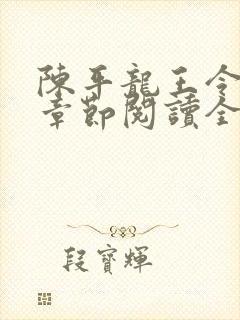 陳平龍王令
章節閱讀全
段寶輝